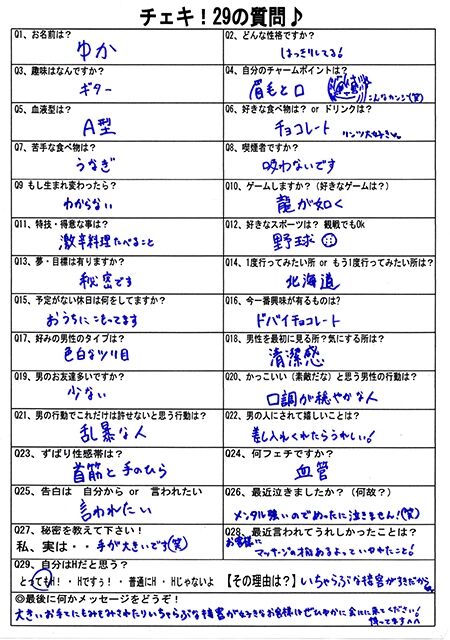 チェキ!29の質問♪
Q1、お名前は?
ゆか
Q2、どんな性格ですか?
はっきりしてる!
Q3、趣味はなんですか?
ギター
Q4、自分のチャームポイントは?
眉毛と口
こんなカンジ(笑)
Q5、血液型は?
A型
Q6、好きな食べ物は? or ドリンクは?
チョコレート リンツ大好き
Q7、苦手な食べ物は?
うなぎ
Q8、喫煙者ですか?
吸わないです
Q9 もし生まれ変わったら?
わからない
Q10、ゲームしますか?(好きなゲームは?)
龍が如く
Q11、特技・得意な事は?
激辛料理たべること
Q12、好きなスポーツは? 観戦でもOk
野球
Q13、夢・目標は有りますか?
秘密です
Q14、1度行ってみたい所 or もう1度行ってみたい所は?
北海道
Q15、予定がない休日は何をしてますか?
おうちにこもってます
Q16、今一番興味が有るものは?
ドバイチョコレート
Q17、好みの男性のタイプは?
色白なツリ目
Q18、男性を最初に見る所?気にする所は?
清潔感
Q19、男のお友達多いですか?
少ない
Q20、かっこいい(素敵だな)と思う男性の行動は?
口調が穏やかな人
Q21、男の行動でこれだけは許せないと思う行動は?
乱暴な人
Q22、男の人にされて嬉しいことは?
差し入れくれたらうれしい!
Q23、ずばり性感帯は?
首筋と手のひら
Q24、何フェチですか?
血管
Q25、告白は 自分から or 言われたい
言われたい
Q26、最近泣きましたか?(何故?)
メンタル強いのでめったに泣きません!(笑)
Q27、秘密を教えて下さい!
私、実は・・手が大きいです(笑)
Q28、最近言われてうれしかったことは?
お客様に
マッサージの才能あるよっていわれたこと!
Q29、自分はHだと思う?
とってもH!・Hですぅ!・普通にH・Hじゃないよ 【その理由は?】いちゃらぶな接客がすきだから
◎最後に何かメッセージをどうぞ!
大きいお手てにもみもみされたりいちゃらぶな接客が好きなお客様はぜひゆかに会いに来てください!
待ってます^^